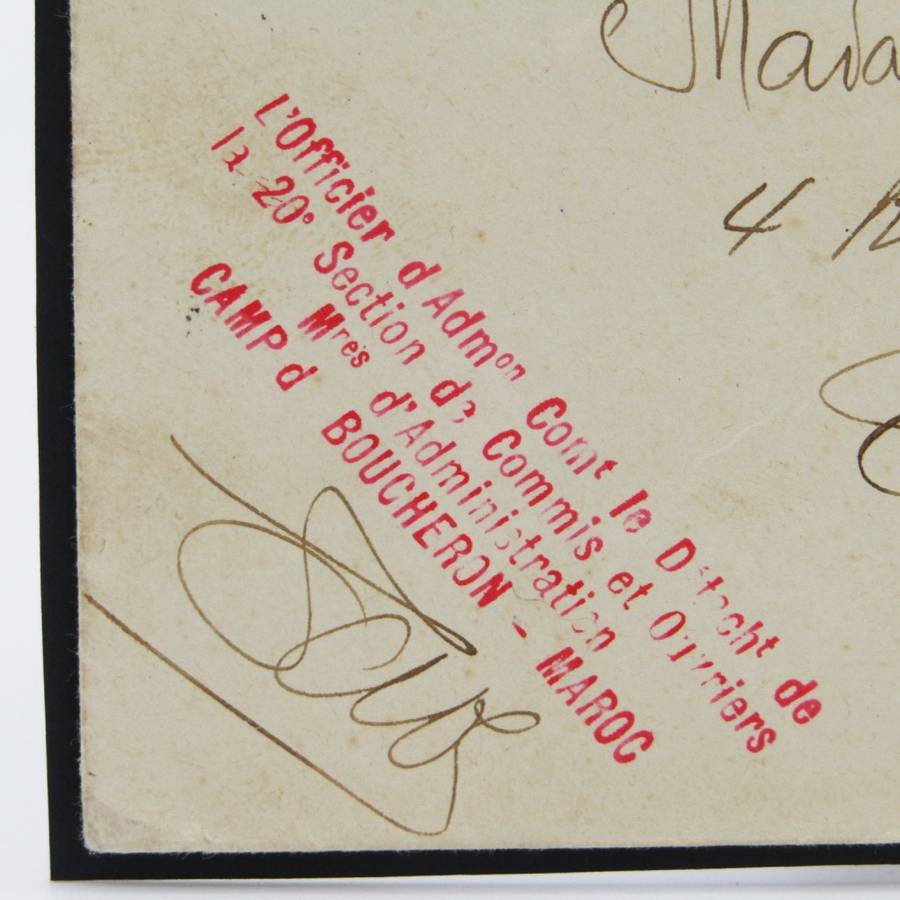 L'Officier d Admon Comt le Détacht de
la 20e Section de Commis et Ouvriers
Mres d'Administration
CAMP d BOUCHERON - MAROC
4